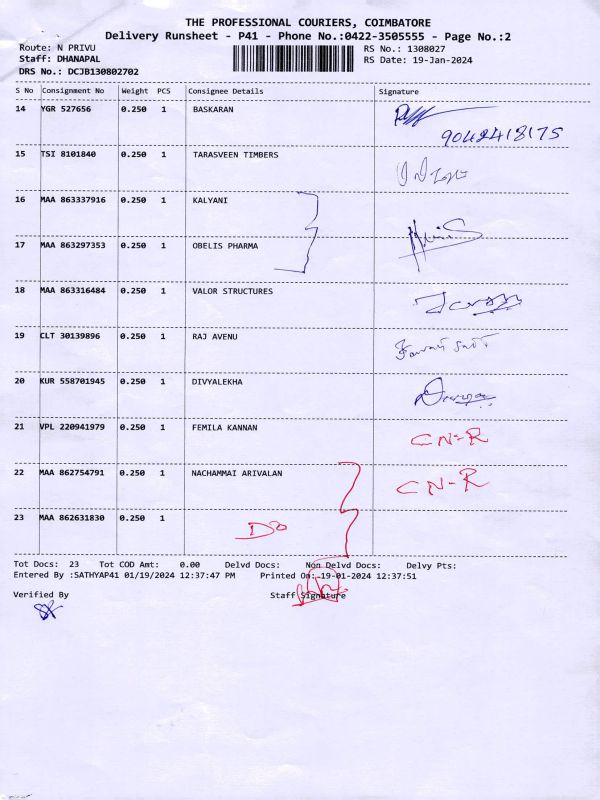 THE PROFESSIONAL COURIERS, COIMBATORE
Delivery Runsheet - P41 - Phone No.:0422-3505555 - Page No.:2
Route: N PRIVU RS No.: 1308027
Staff: DHANAPAL RS Date: 19-Jan-2024
DRS No.: DCJB130802702
S No Consignment No Weight PCS Consignee Details Signature
14 YGR 527656 0.250 1 BASKARAN
9042418175
15 TSI 8101840 0.250 1 TARASVEEN TIMBERS
16 MAA 863337916 0.250 1 KALYANI
17 MAA 863297353 0.250 1 OBELIS PHARMA
18 MAA 863316484 0.250 1 VALOR STRUCTURES
19 CLT 30139896 0.250 1 RAJ AVENU
20 KUR 558701945 0.250 1 DIVYALEKHA
21 VPL 220941979 0.250 1 FEMILA KANNAN CN-R
22 MAA 862754791 0.250 1 NACHAMMAI ARIVALAN CN-R
23 MAA 862631830 0.250 1 Do
Tot Docs: 23 Tot COD Amt: 0.00 Delvd Docs: Non Delvd Docs: Delvy Pts:
Entered By :SATHYAP41 01/19/2024 12:37:47 PM Printed On: 19-01-2024 12:37:51
Verified By Staff Signature